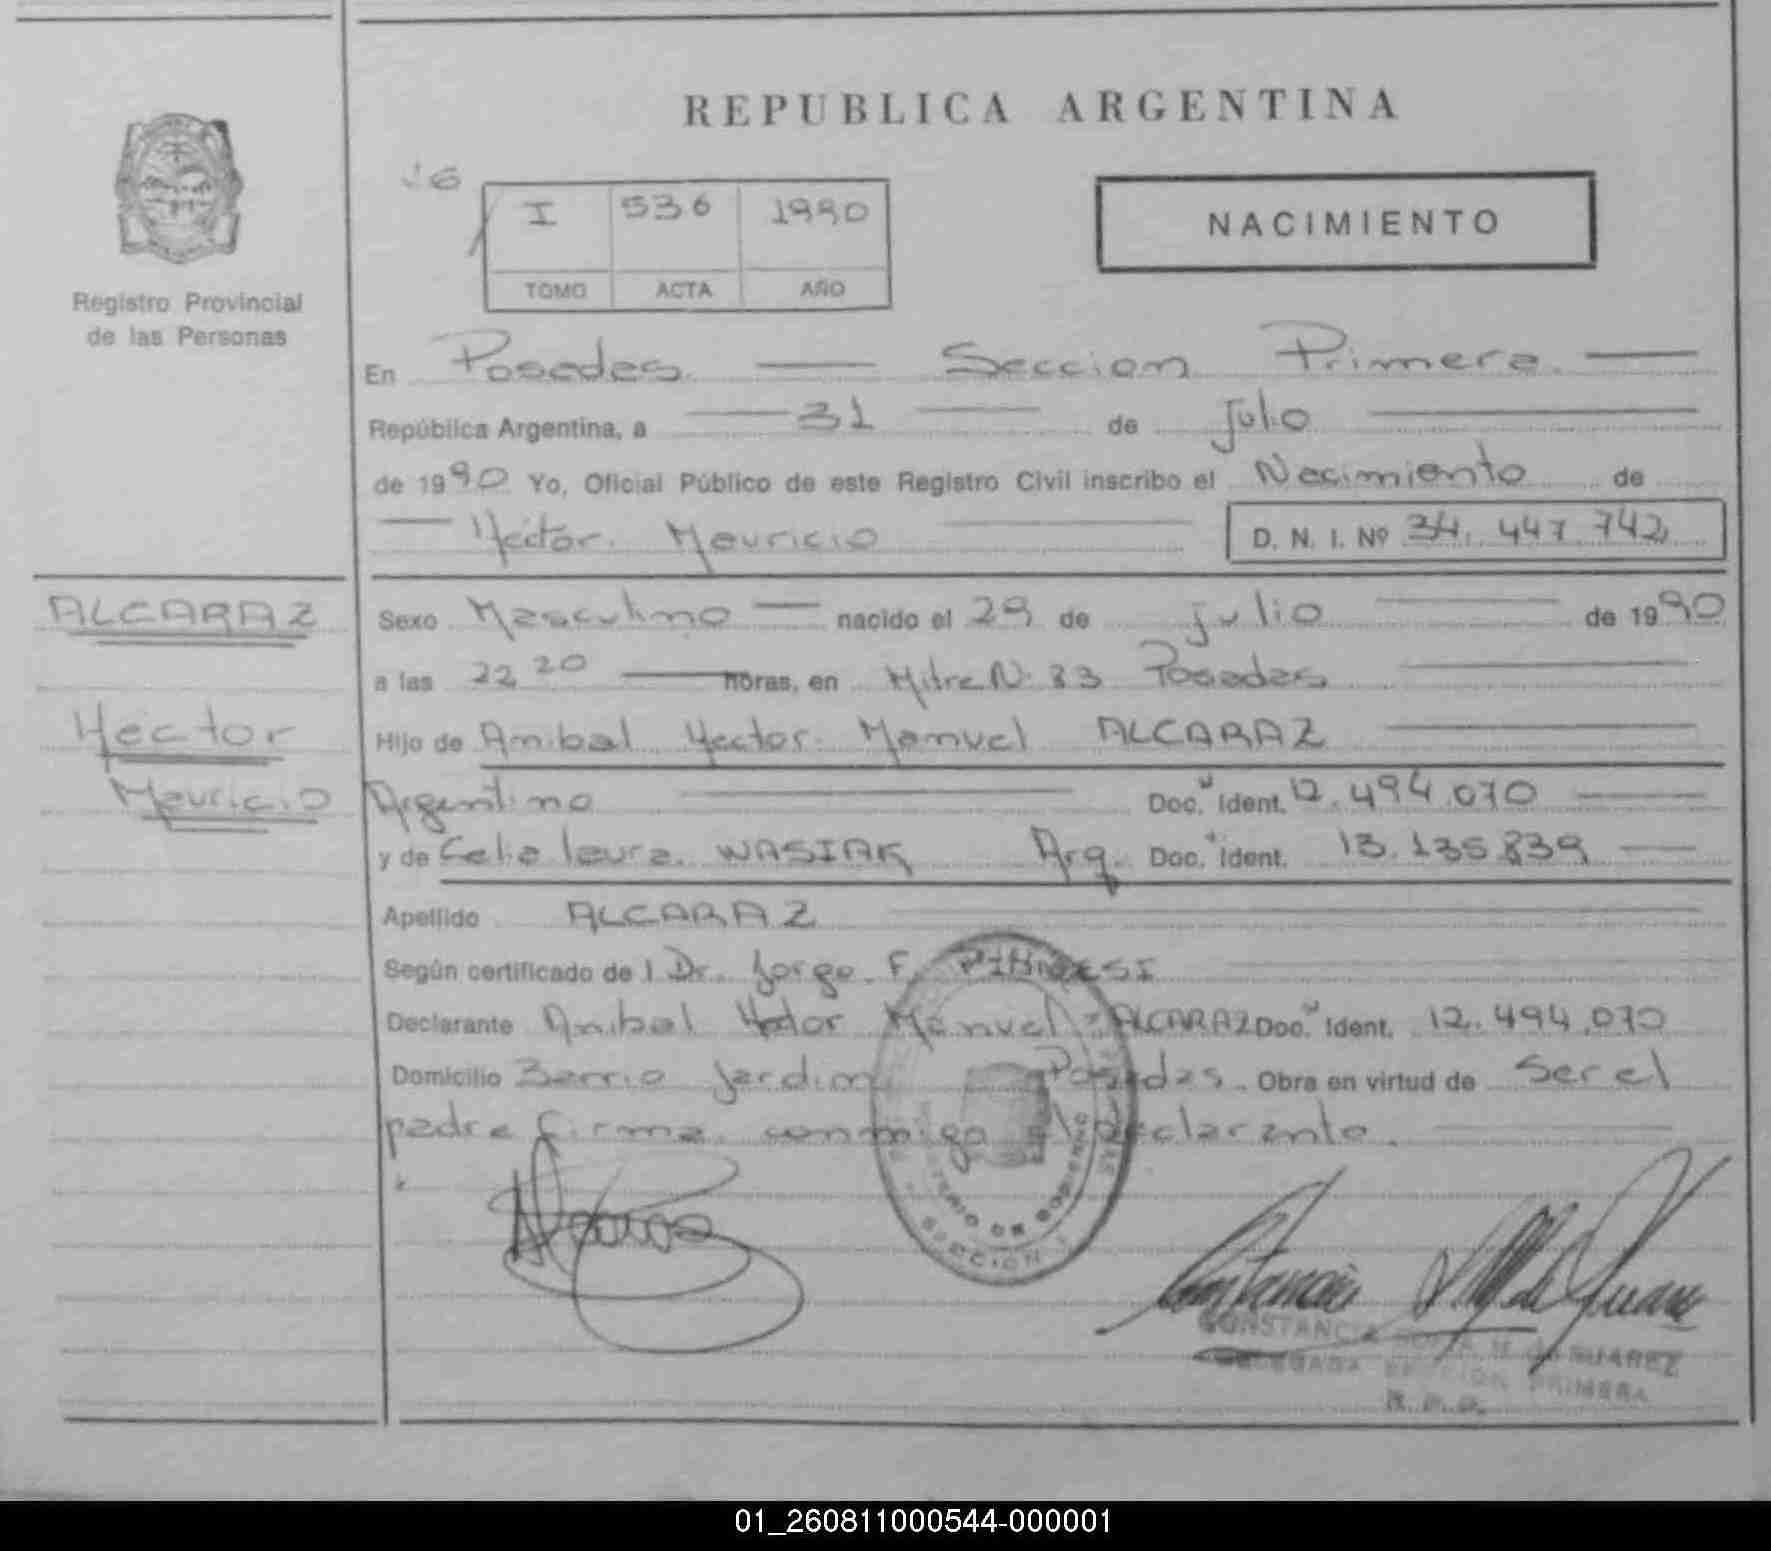 REPUBLICA ARGENTINA
I 536 1990
TOMO ACTA AÑO
NACIMIENTO
Registro Provincial
de las Personas
En Posadas. Seccion Primera.
República Argentina, a 31 de julio
de 1990 Yo, Oficial Público de este Registro Civil inscribo el Nacimiento de
Hector. Mauricio D. N. I. Nº 34.447.742
ALCARAZ
Hector
Mauricio
Sexo Masculino nacido el 29 de julio de 1990
a las 22 20 horas, en Mitre N. 83 Posadas
Hijo de Anibal Hector Manuel ALCARAZ
Argentino Doc. Ident. 12.494.070
y de Celia laura. WASIAK Arg. Doc. Ident. 13.135.839
Apellido ALCARAZ
Según certificado de l Dr. Jorge F.
Declarante Anibal Hector Manuel ALCARAZ Doc. Ident. 12.494.070
Domicilio Barrio Jardin Posadas. Obra en virtud de Ser el
padre firma conmigo el declarante.
MINISTERIO DE GOBIERNO
SECCION 1
CONSTANCIA DE SUAREZ
DELEGADA SECCION PRIMERA
R. P. P.
01_260811000544-000001